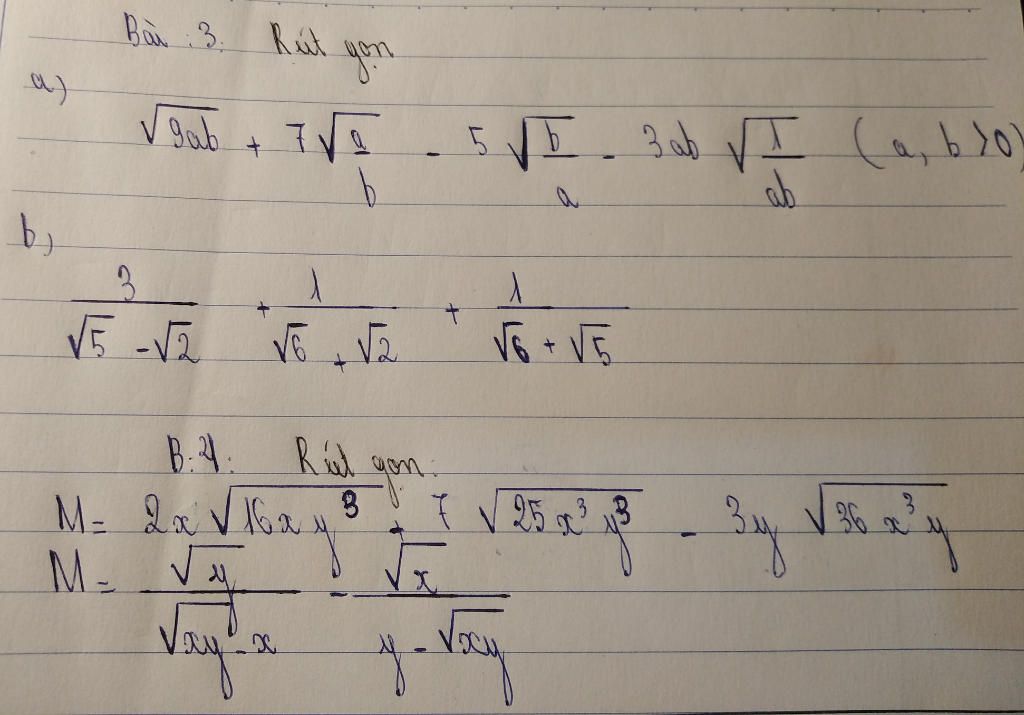 Bài : 3 : Rút gọn
a)
√9ab + 7√(a/b) - 5√(b/a) - 3ab √(1/ab) (a, b >0)
b)
3/(√5 - √2) + 1/(√6 + √2) + 1/(√6 + √5)
B: 4: Rút gọn:
M = 2x√(16xy³) + 7 √(25x³y³) - 3y √(36x³y)
M = √y/(√xy - x) - √x/(y - √xy)